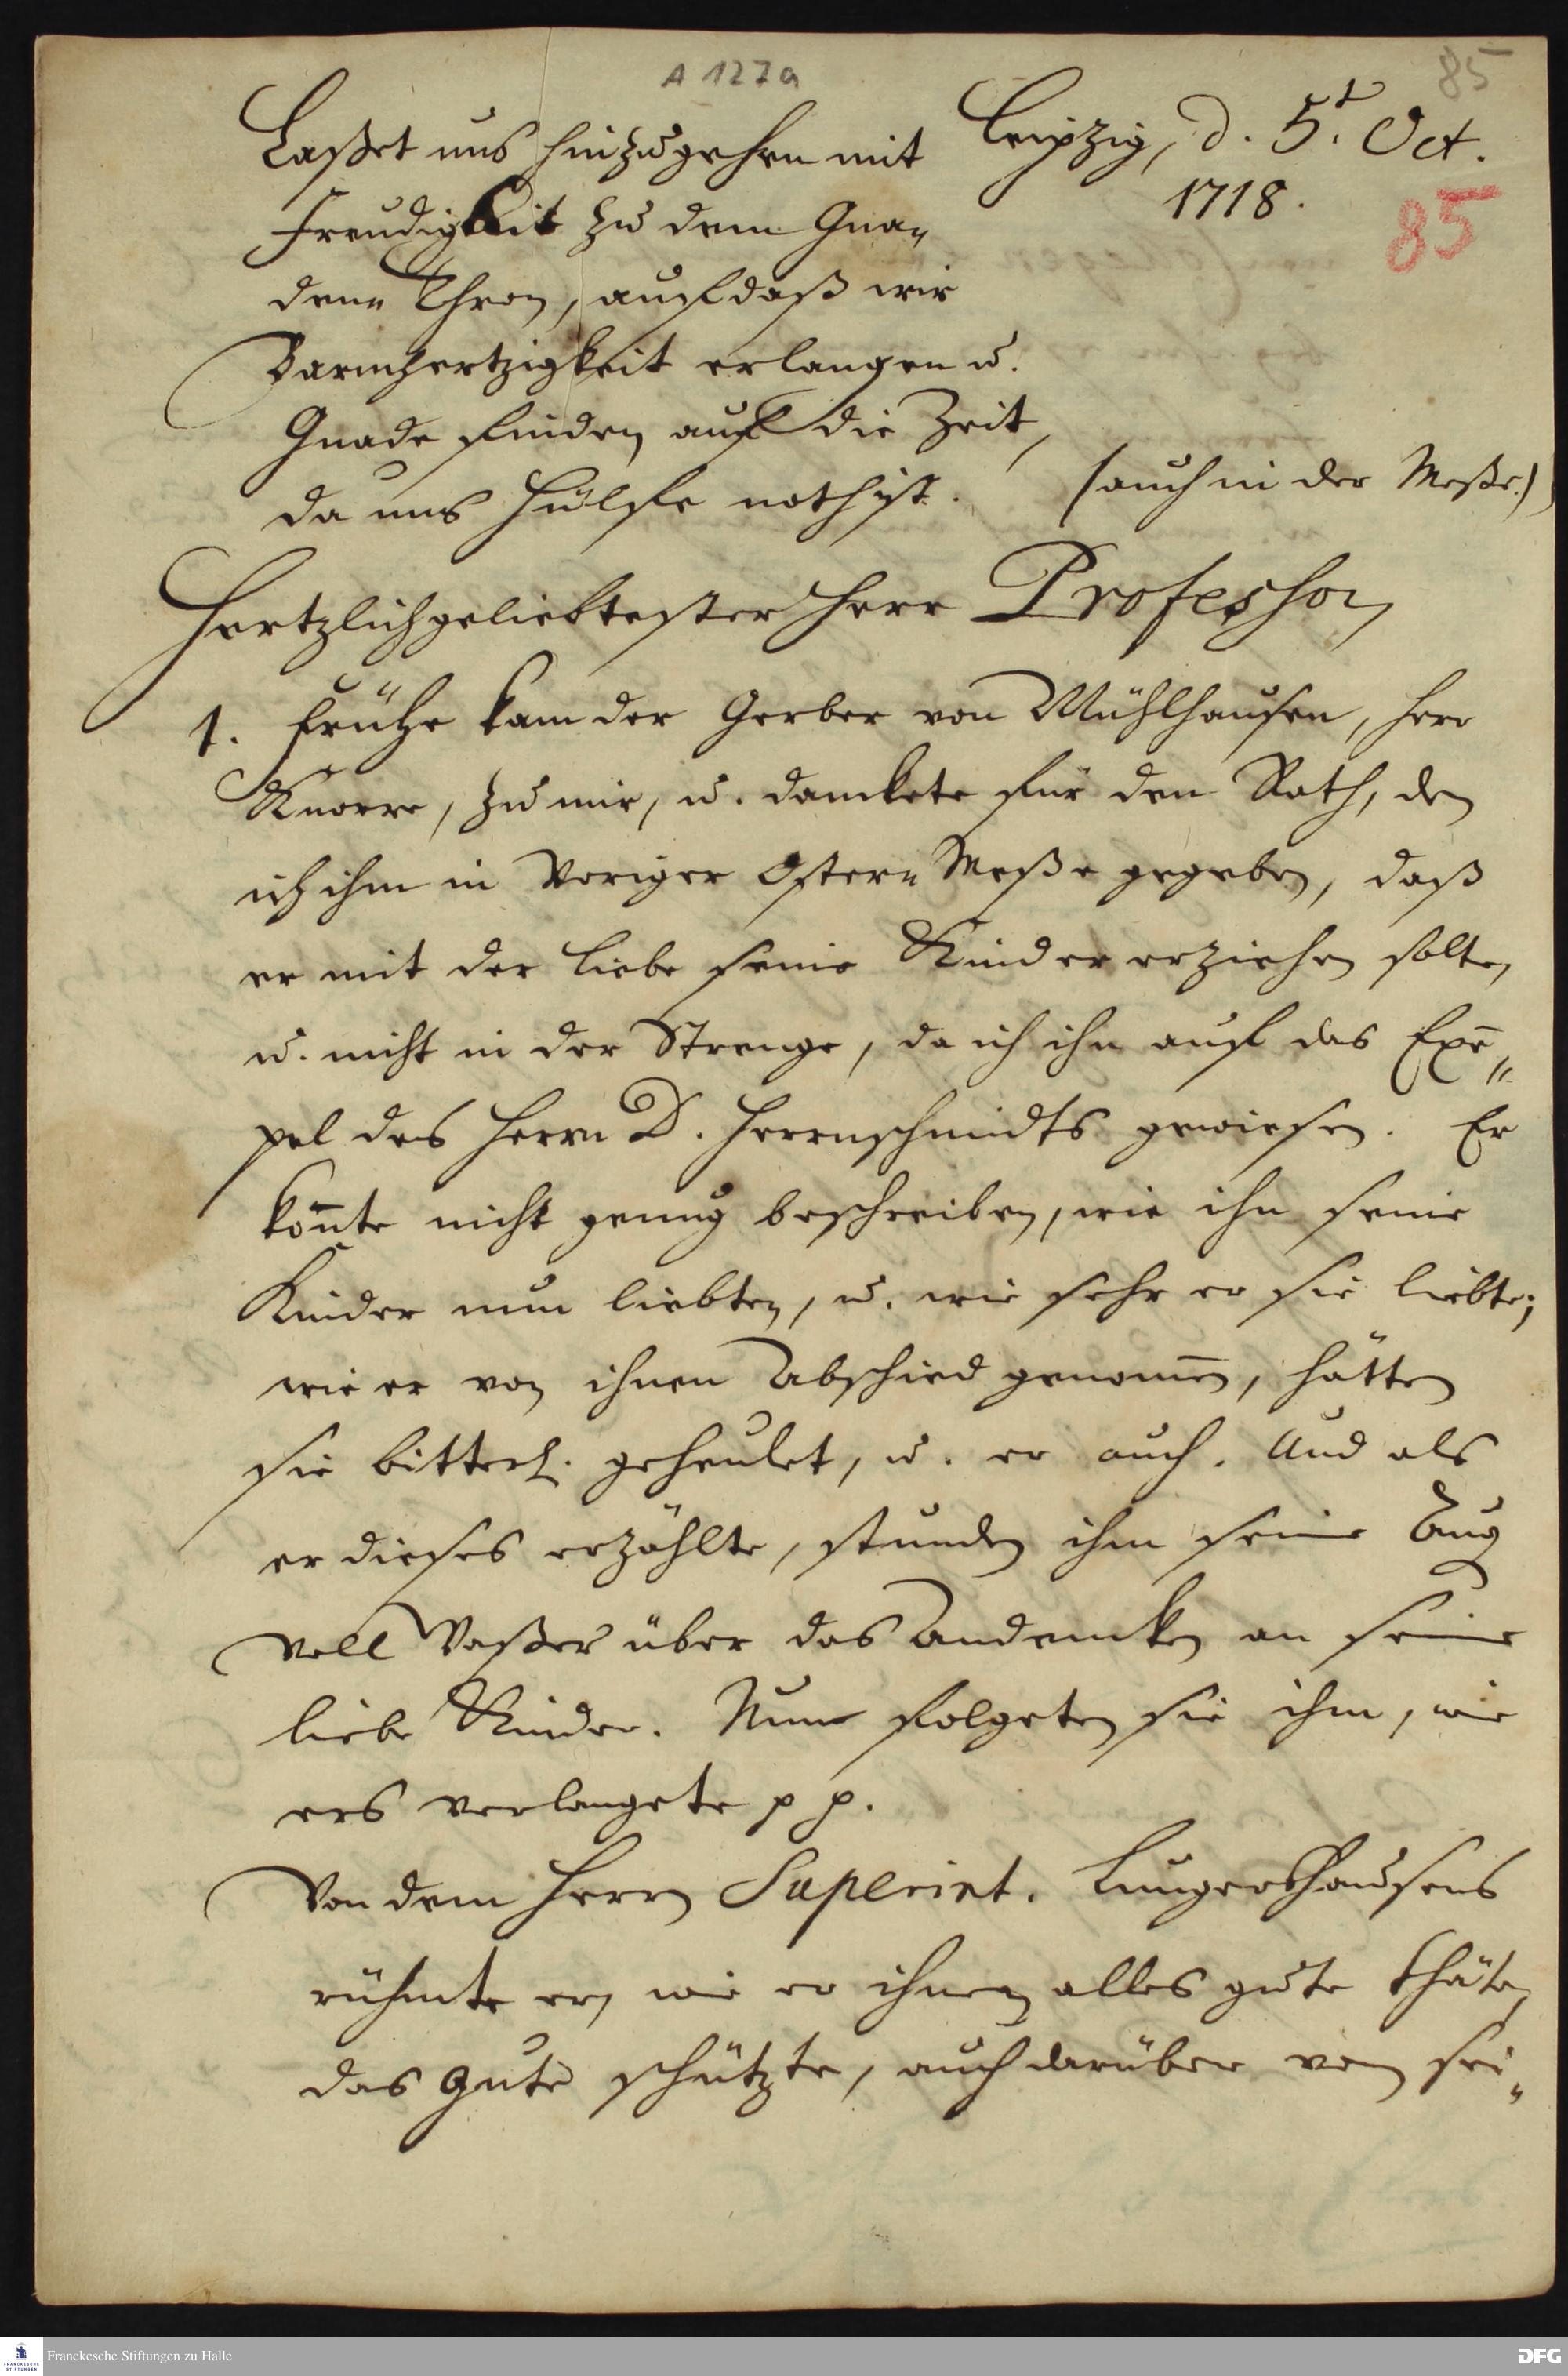 A 127a
85
Laßet uns hinzugehen mit
Freudigkeit zu dem Gna„
den„ Thron, auf daß wir
Barmhertzigkeit erlangen u.
Gnade finden auf die Zeit,
da uns Hülfe noth ist.
Leipzig, d. 5t. Oct.
1718.
85
(auch in der Meße.)
Hertzlichgeliebtester Herr Professor,
1. Frühe kam der Gerber von Mühlhausen, Herr
Knorre, zu mir, u. danckete für den Rath, den
ich ihm in voriger Oster„ Meße gegeben, daß
er mit der Liebe seine Kinder erziehen solte,
u. nicht in der Strenge, da ich ihn auf das Exē„
pel des Herrn D. Herrnschmidts gewiesen. Er
kon̄te nicht genug beschreiben, wie ihn seine
Kinder nun liebten, u. wie sehr er sie liebte;
wie er von ihnen Abschied genom̄en, hätten
sie bitterl. geheulet, u. er auch. Und als
er dieses erzählte, stunden ihm seine Aug
voll Waßer über das Andencken an seine
liebe Kinder. Nun folgeten sie ihm, wie
ers verlangete p p.
Von dem Herrn Superint. Lungershausens
rühmte er, wie er ihnen alles gute thäte,
das Gute schützte, auch darüber von sei„
Franckesche Stiftungen zu Halle
FRANCKESCHE STIFTUNGEN
DFG